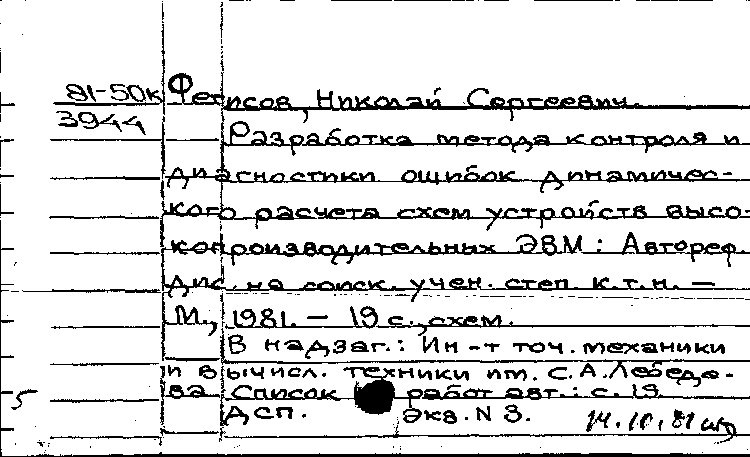 81-50к Фетисов, Николай Сергеевич.
3944
Разработка метода контроля и
диагностики ошибок динамичес-
кого расчета схем устройств высо-
копроизводительных ЭВМ: Автореф.
дис. на соиск. учен. степ. к.т.н. —
М., 1981. — 19 с., схем.
В надзаг.: Ин-т точ. механики
и вычисл. техники им. С.А.Лебеде-
ва. Список работ авт.: с. 19.
5 ДСП. Экз. N 3. 14.10.81